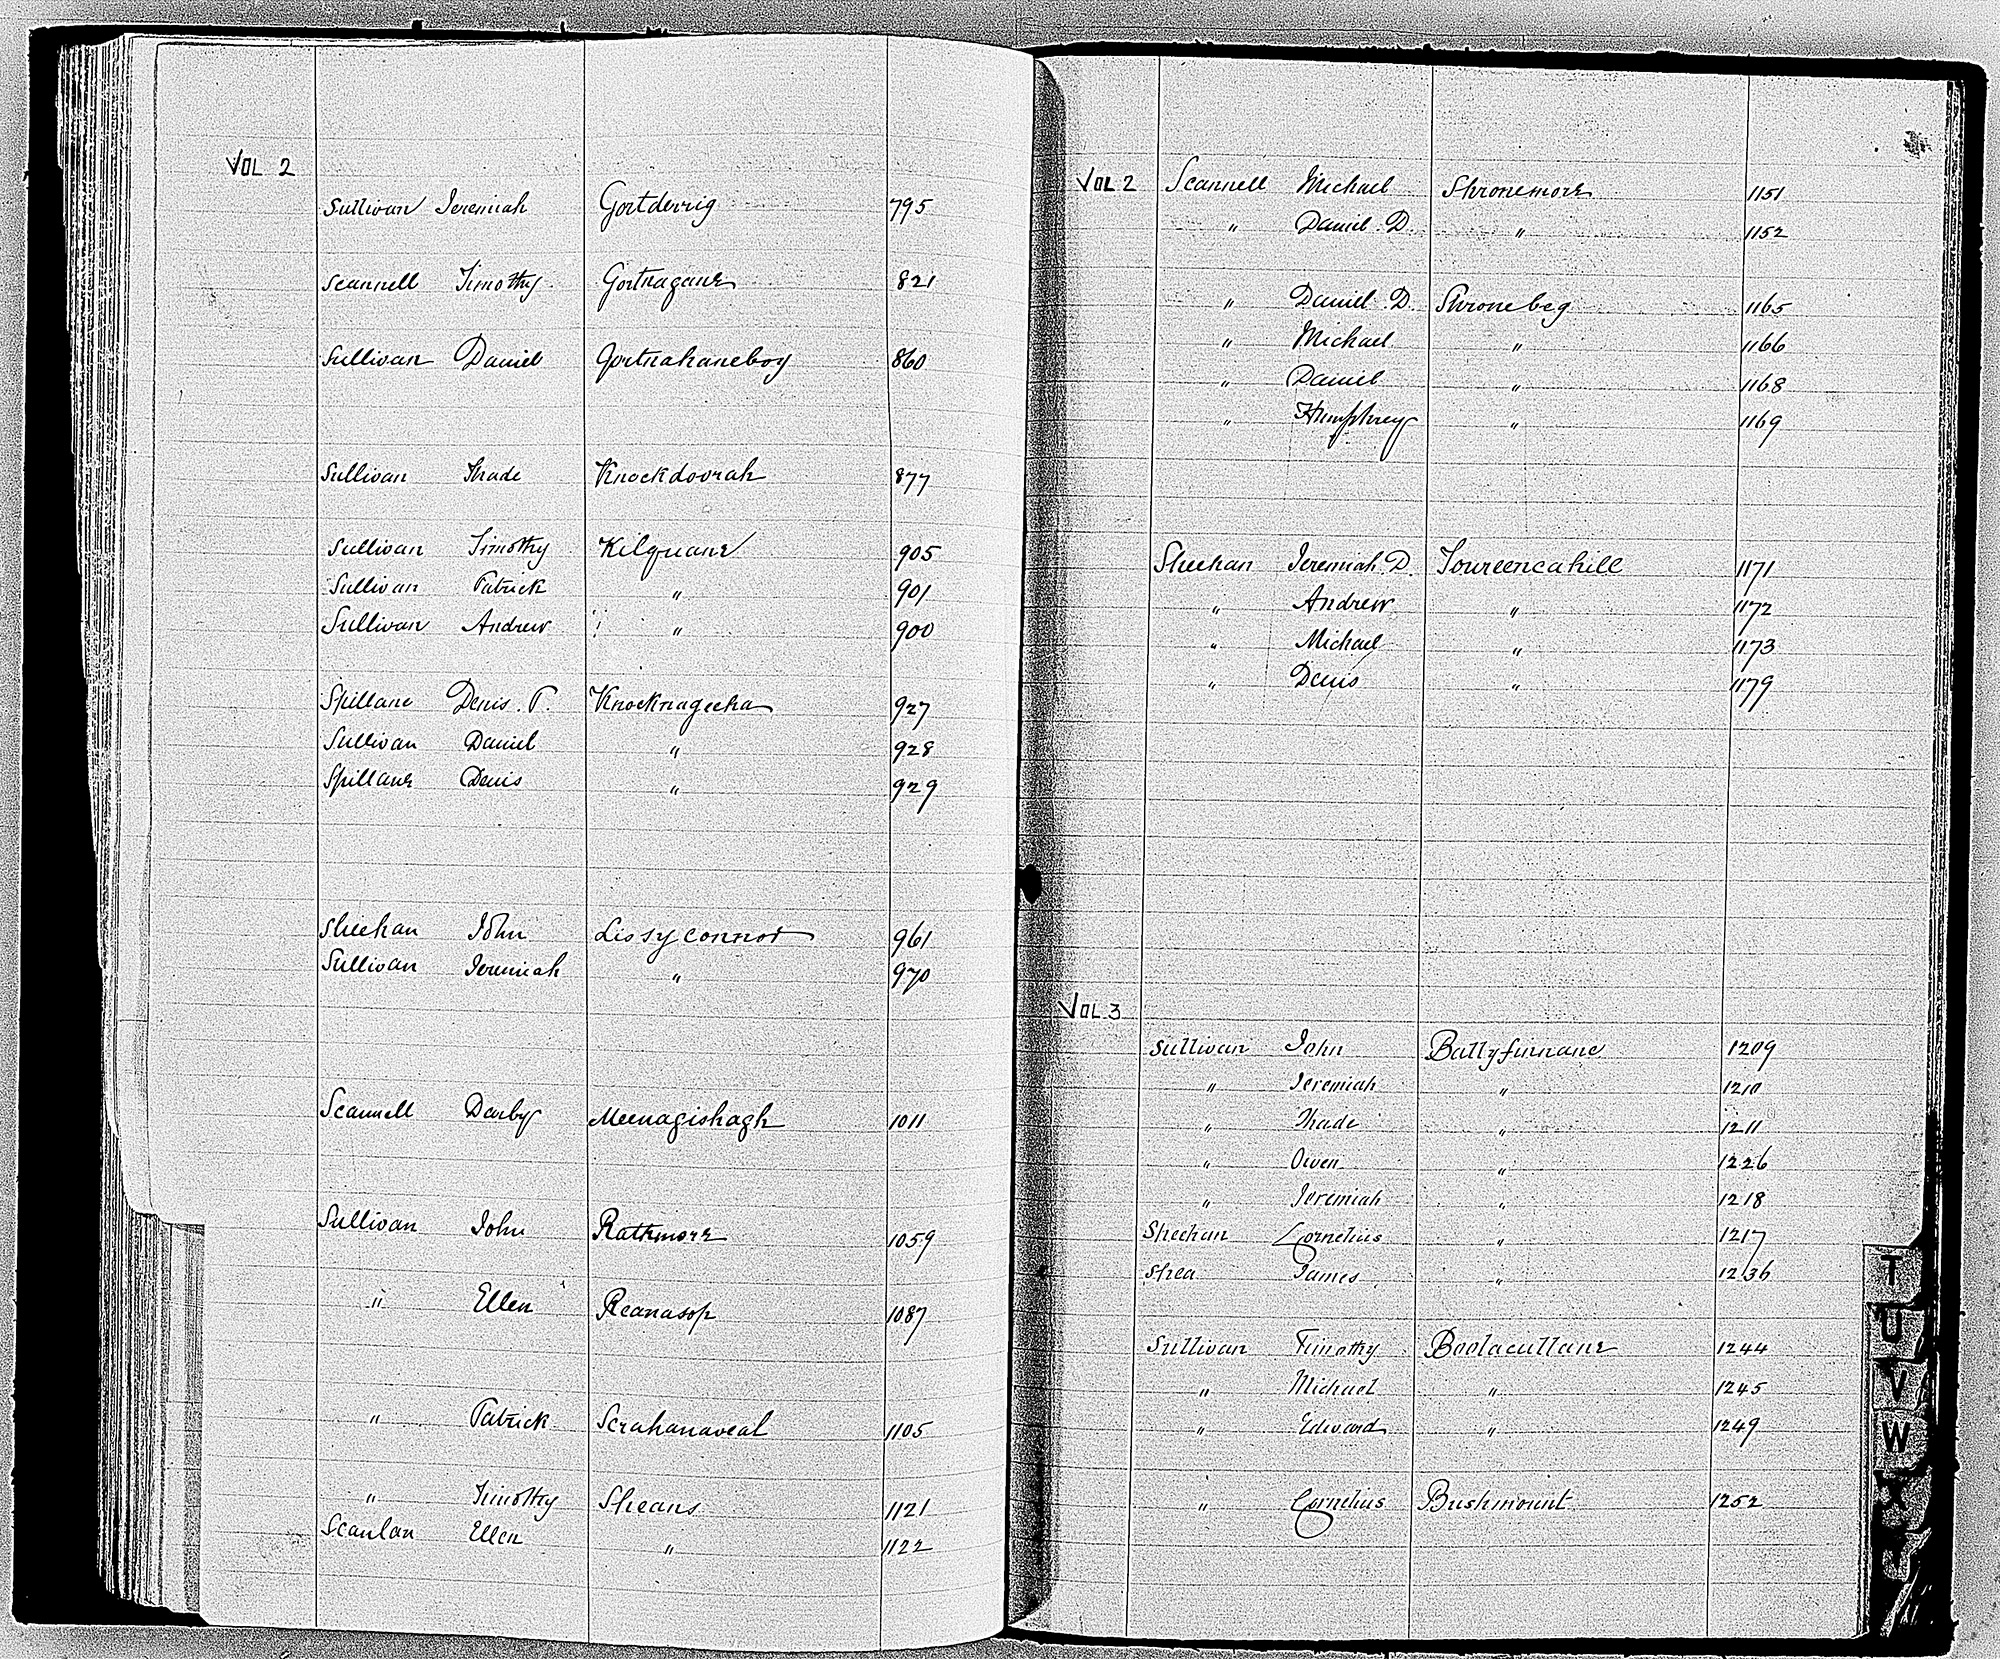 VOL 2
Sullivan Jeremiah Gortderrig 795
Scannell Timothy Gortnagane 821
Sullivan Daniel Gortnahaneboy 860
Sullivan Thade Knockdoorah 877
Sullivan Timothy Kilquane 905
Sullivan Patrick " 901
Sullivan Andrew " 900
Spillane Denis. P. Knocknageeha 927
Sullivan Daniel " 928
Spillane Denis " 929
Sheehan John Lissyconnor 961
Sullivan Jeremiah " 970
Scannell Darby Meenagishagh 1011
Sullivan John Rathmore 1059
" Ellen Reanasop 1087
" Patrick Scrahanaveal 1105
" Timothy Sheans 1121
Scanlan Ellen " 1122
VOL 2 Scannell Michael Shronemore 1151
" Daniel. D. " 1152
" Daniel. D. Shronebeg 1165
" Michael " 1166
" Daniel " 1168
" Humphrey " 1169
Sheehan Jeremiah. D. Toureencahill 1171
" Andrew " 1172
" Michael " 1173
" Denis " 1179
VOL. 3
Sullivan John Ballyfinnane 1209
" Jeremiah " 1210
" Thade " 1211
" Owen " 1226
" Jeremiah " 1218
Sheehan Cornelius " 1217
Shea James " 1236
Sullivan Timothy Boolacullane 1244
" Michael " 1245
" Edward " 1249
" Cornelius Bushmount 1252
T
U
V
W
X